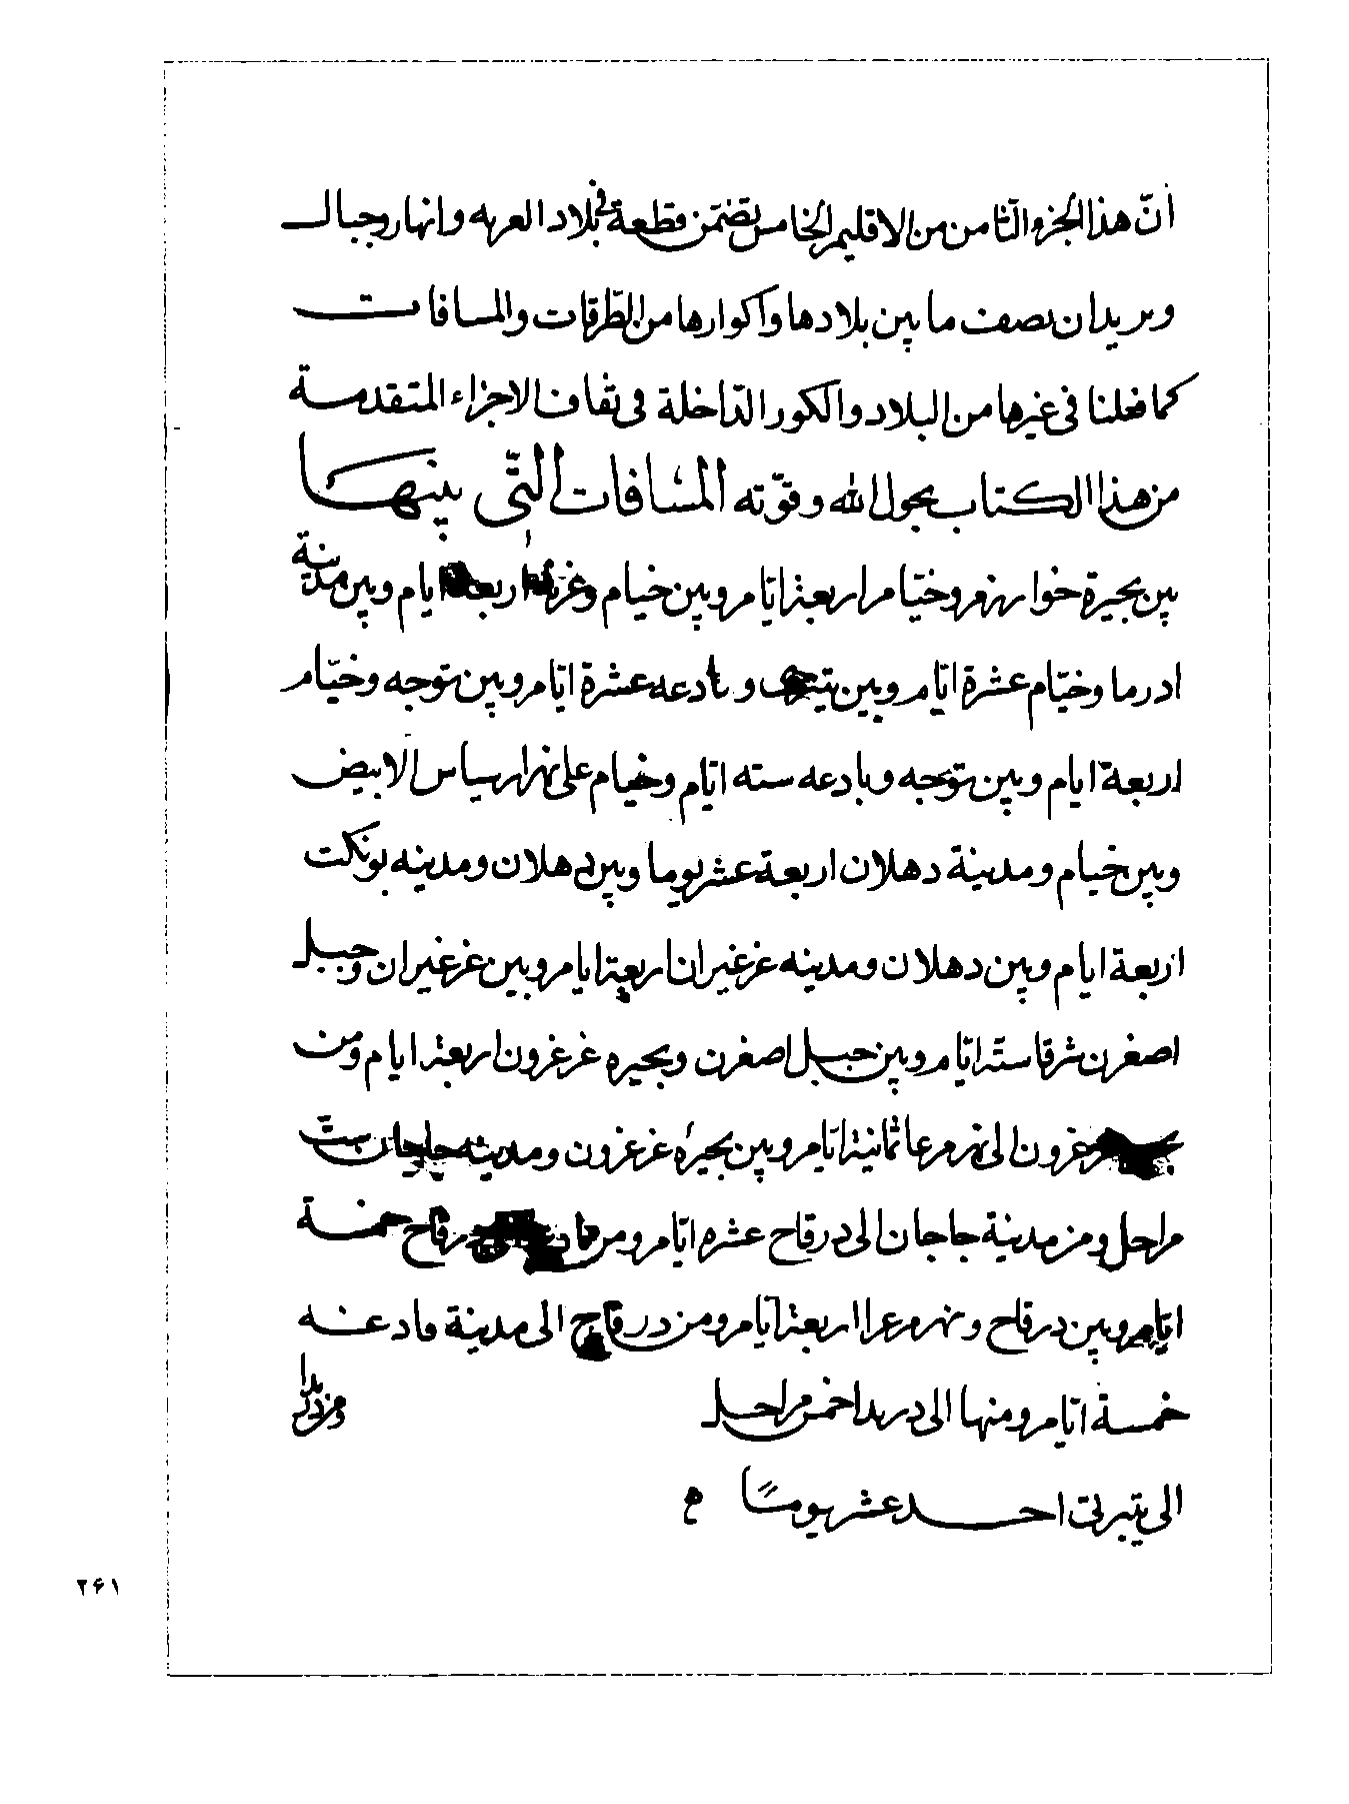 انّ هذا الجزو الثامن من الاقليم الخامس تضمّن قطعة في بلاد العربه وانهار وجبال
ونريد ان نصف ما بين بلادها واكوارها من الطّرقات والمسافات
كما فعلنا في غيرها من البلاد والكور الدّاخلة فى الاجزاء المتقدمة
من هذا الكتاب بحول الله وقوّته المسافات التّى بينها
بين بحيرة خوارزم وخيّام اربعة ايّام وبين خيام اربعة ايام وبين مدينة
ادرما وخيّام عشرة ايّام وبين وبادعه عشرة ايّام وبين توجه وخيّام
اربعة ايام وبين توجه وبادعه سته ايّام وخيام على نهر ارساس الابيض
وبين خيام ومدينة دهلان اربعة عشر يوما وبين دهلان ومدينه بونكت
اربعة ايام وبين دهلان ومدينه غرغيران اربعة ايام وبين غرغيران وجبل
اصغرن شرقا ستّة ايّام وبين جبل اصغرن وبحيره غرغرون اربعة ايام ومن
غرغرون الى نهر مرعا ثمانية ايّام وبين بحيرة غرغرون ومدينه جاجان ستّ
مراحل ومن مدينة جاجان الى درقاح عشره ايّام ومن درقاح خمسة
ايّام وبين درقاح ونهر مرعا اربعة ايّام ومن درقاح الى مدينة مادعنه
خمسة ايّام ومنها الى دربدا خمس مراحل ومن دربدا
الى احد عشر يومًا
۲۶۱